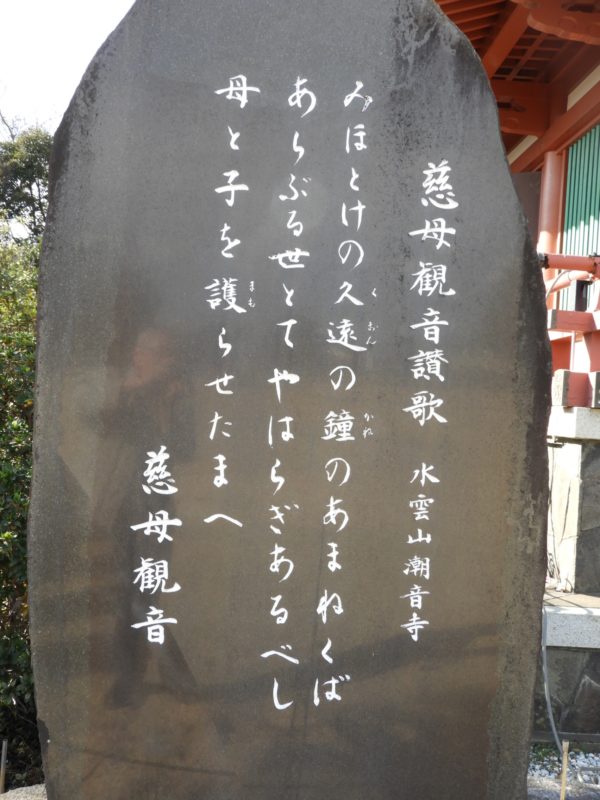 慈母観音讃歌 水雲山潮音寺
みほとけの久遠の鐘のあまねくば
くおん かね
あらぶる世とてやはらぎあるべし
母と子を護らせたまへ
まも
慈母観音